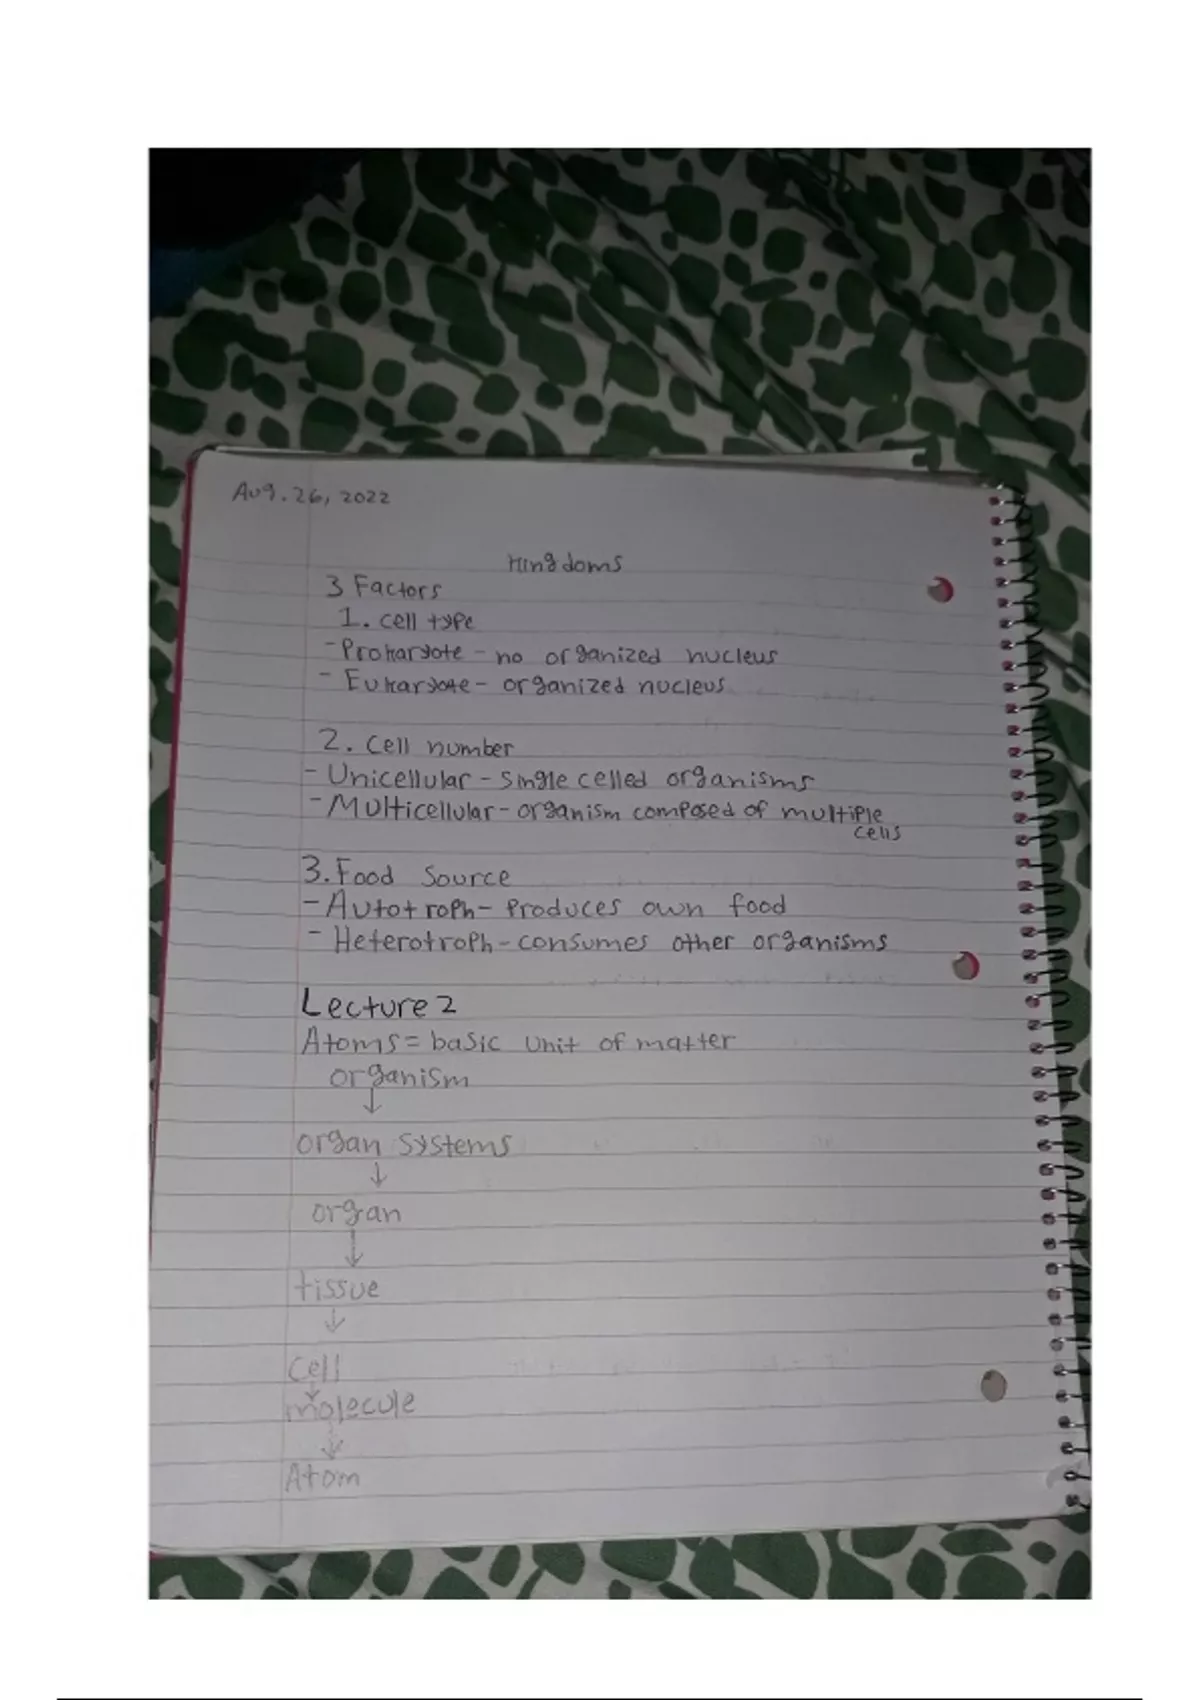 Aug. 26, 2022
Kingdoms
3 Factors
1. cell type
- Prokaryote - no organized nucleus
- Eukaryote - organized nucleus
2. Cell number
- Unicellular - single celled organisms
- Multicellular - organism composed of multiple
cells
3. Food Source
- Autotroph - Produces own food
- Heterotroph - consumes other organisms
Lecture 2
Atoms = basic unit of matter
organism
↓
organ systems
↓
organ
↓
tissue
↓
Cell
↓
molecule
↓
Atom